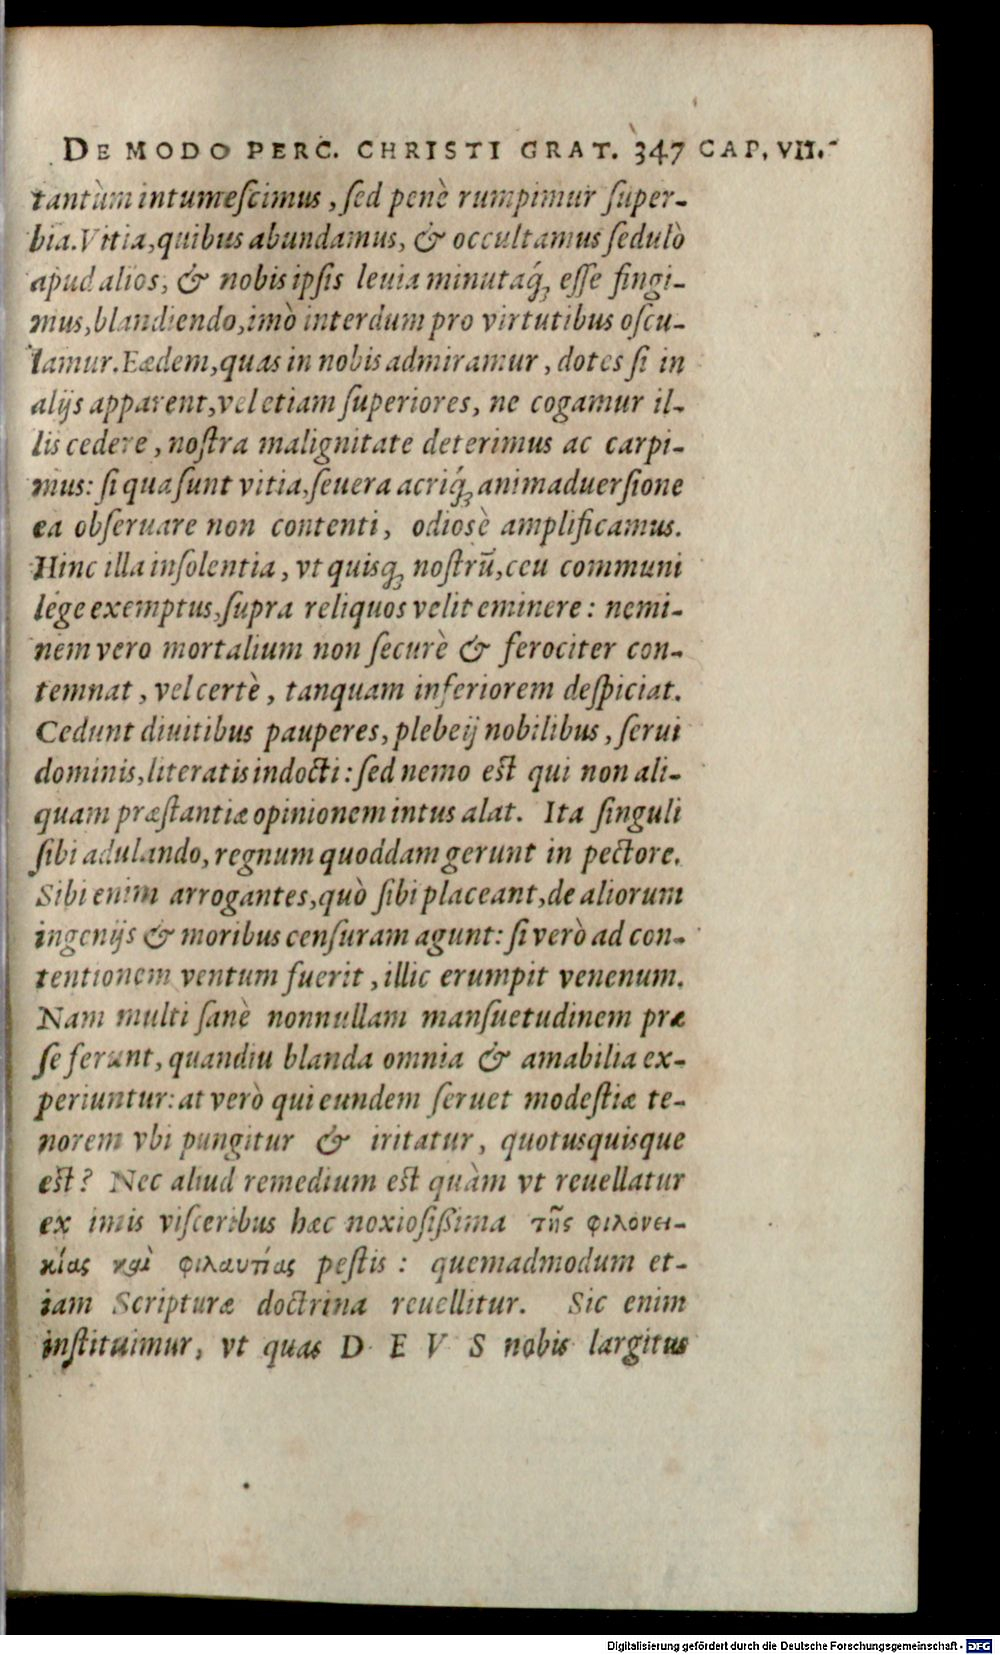 DE MODO PERC. CHRISTI GRAT. 347 CAP. VII.
tantùm intumeſcimus, ſed penè rumpimur ſuper-
bia. Vitia, quibus abundamus, & occultamus ſedulò
apud alios, & nobis ipſis leuia minutaq́ꝫ eſſe fingi-
mus, blandiendo, imò interdum pro virtutibus oſcu-
lamur. Eædem, quas in nobis admiramur, dotes ſi in
alijs apparent, vel etiam ſuperiores, ne cogamur il-
lis cedere, noſtra malignitate deterimus ac carpi-
mus: ſi qua ſunt vitia, ſeuera acriq́ꝫ animaduerſione
ea obſeruare non contenti, odiosè amplificamus.
Hinc illa inſolentia, vt quisqꝫ noſtrū, ceu communi
lege exemptus, ſupra reliquos velit eminere: nemi-
nem vero mortalium non ſecurè & ferociter con-
temnat, vel certè, tanquam inferiorem deſpiciat.
Cedunt diuitibus pauperes, plebeij nobilibus, ſerui
dominis, literatis indocti: ſed nemo eſt qui non ali-
quam præſtantiæ opinionem intus alat. Ita ſinguli
ſibi adulando, regnum quoddam gerunt in pectore.
Sibi enim arrogantes, quò ſibi placeant, de aliorum
ingenijs & moribus cenſuram agunt: ſi verò ad con-
tentionem ventum fuerit, illic erumpit venenum.
Nam multi ſanè nonnullam manſuetudinem præ
ſe ferunt, quandiu blanda omnia & amabilia ex-
periuntur: at verò qui eundem ſeruet modeſtiæ te-
norem vbi pungitur & iritatur, quotusquisque
eſt? Nec aliud remedium eſt quàm vt reuellatur
ex imis viſceribus hæc noxioſiſſima τῆς φιλονει-
κίας καὶ φιλαυτίας peſtis: quemadmodum et-
iam Scripturæ doctrina reuellitur. Sic enim
inſtituimur, vt quas DEVS nobis largitus
Digitalisierung gefördert durch die Deutsche Forschungsgemeinschaft - DFG